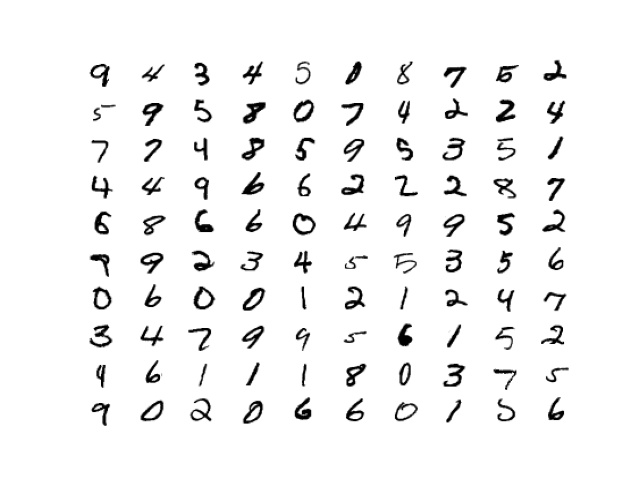 9 4 3 4 5 0 8 7 5 2
5 9 5 8 0 7 4 2 2 4
7 7 4 8 5 9 5 3 5 1
4 4 9 6 6 2 2 2 8 7
6 8 6 6 0 4 9 9 5 2
9 9 2 3 4 5 5 3 5 6
0 6 0 0 1 2 1 2 4 7
3 4 7 9 9 5 6 1 5 2
4 6 1 1 1 8 0 3 7 5
9 0 2 0 6 6 0 1 5 6